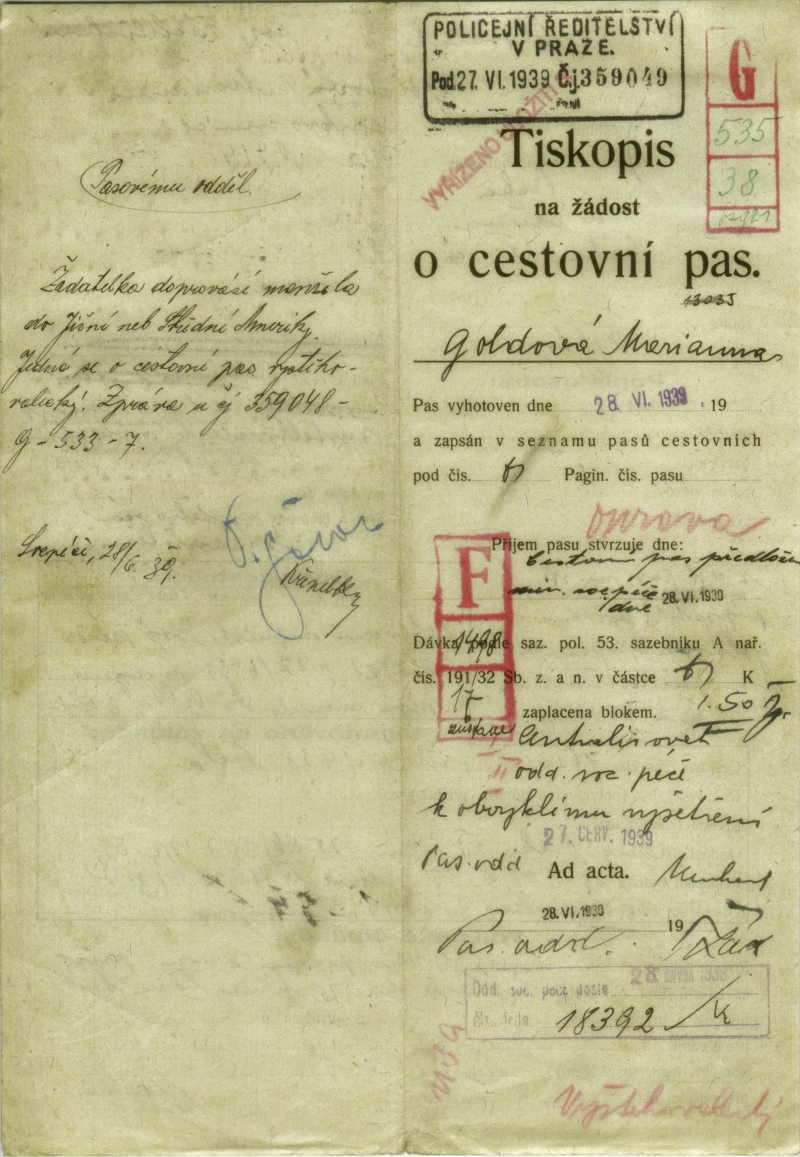 Pasovému odděl.
Žadatelka doprovází manžela
do Jižní neb Střední Ameriky.
Jedná se o cestovní pas vystěho-
valecký. Zpráva u čj 359048-
G-533-7.
28/6. 39.
POLICEJNÍ ŘEDITELSTVÍ
V PRAZE.
Pod. 27. VI. 1939 Čj. 359049
VYŘÍZENO
G
535
38
Tiskopis
na žádost
o cestovní pas.
Goldová Marianna
Pas vyhotoven dne 28. VI. 1939. 19
a zapsán v seznamu pasů cestovních
pod čís. Pagin. čís. pasu
Oprava
Příjem pasu stvrzuje dne:
Cestovní pas předložen
min. soc. péče
dne 28. VI. 1939
F
1498
17
Dávka podle saz. pol. 53. sazebníku A nař.
čís. 191/32 Sb. z. a n. v částce K
zaplacena blokem. 1.50
odd. soc. péče
k obvyklému vyšetření
27. ČERV. 1939
Pas. odd
Ad acta.
28. VI. 1939 19
Pas. odd.
Odd. soc. péče došlo 28
18392
Vystěhovalecký